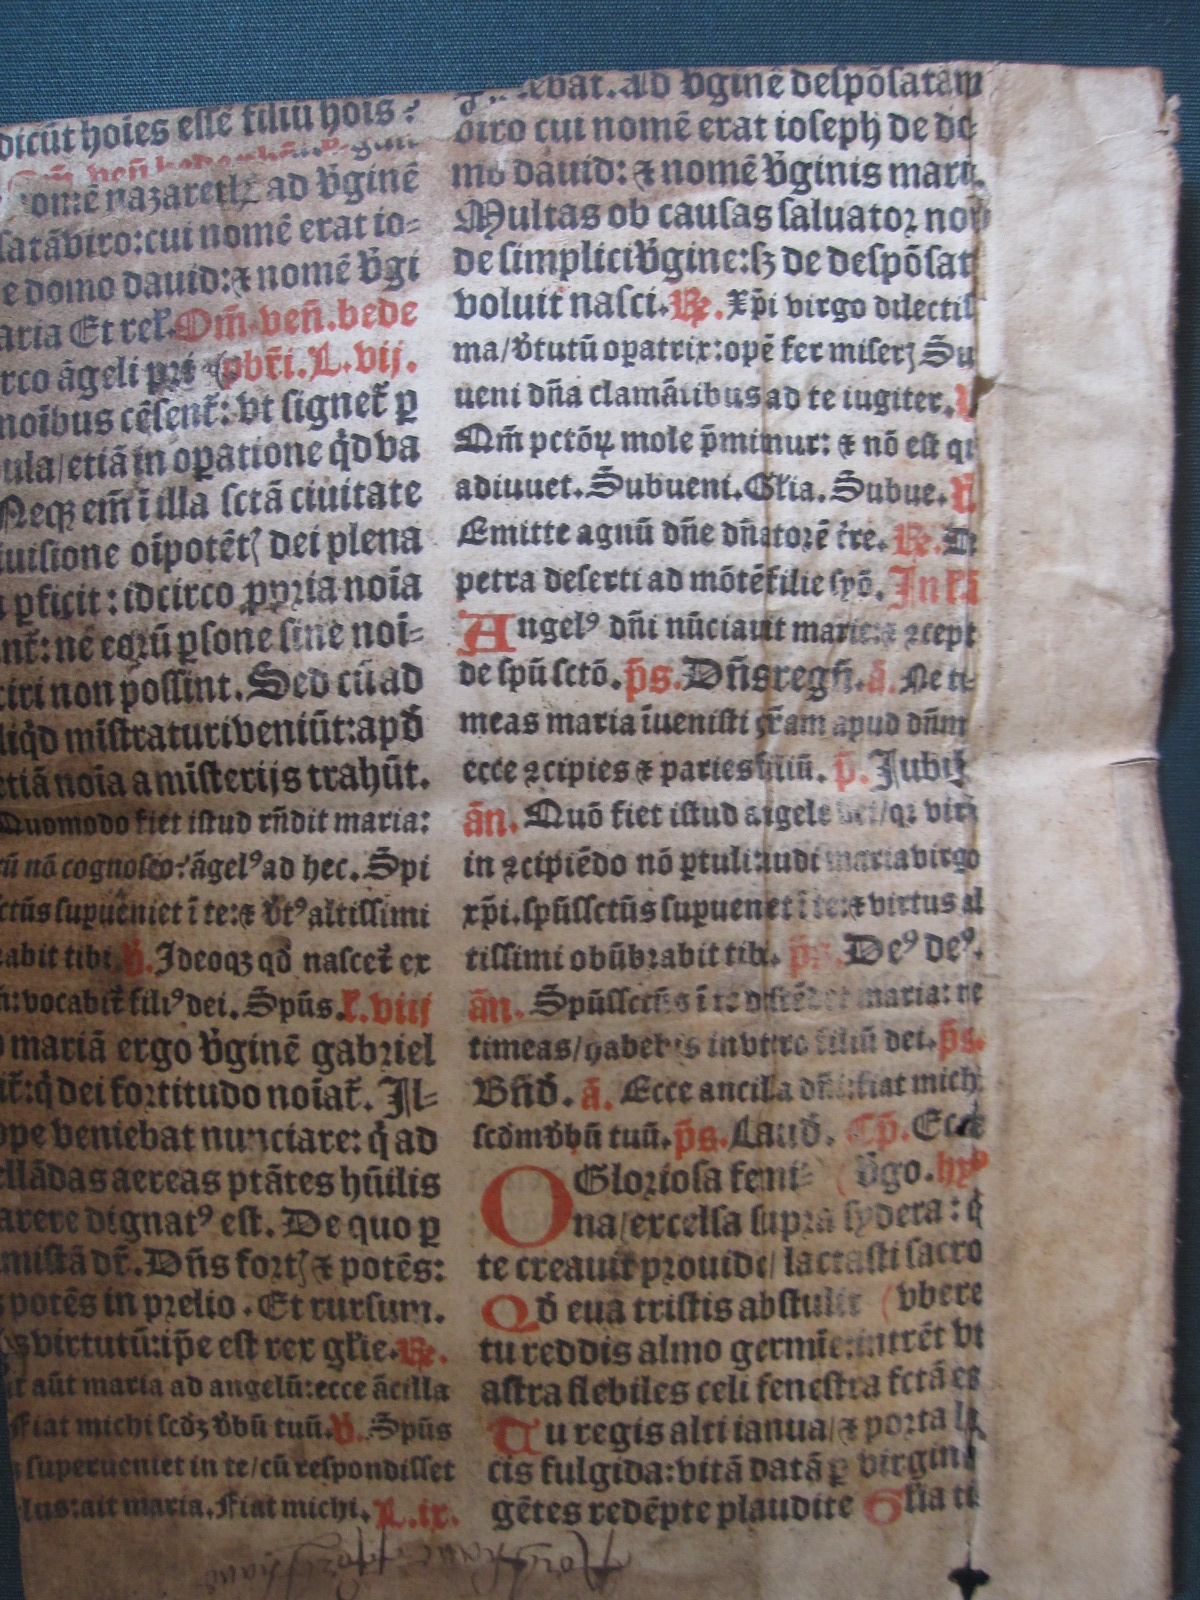 dicūt hoīes esse filiū hoīs :
nomē nazareth ad v̄ginē
satā viro: cui nomē erat io=
e domo dauid: ⁊ nomē v̄gi
aria Et rel̄. Om̄. ven̄. bede
rco āgeli pbr̄i. L. vij.
noībus cēsent̄: vt signet̄ ꝑ
ula/ etiā in oꝑatione qd̄ va
Neqꝫ em̄ ī illa sctā ciuitate
uisione oīpotēt dei plena
ꝑficit : idcirco ꝓpria noīa
nt̄: ne eoꝝū ꝑsone sine noī=
ciri non possint. Sed cū ad
liqd̄ mīstraturi veniūt: apd̄
etiā noīa a mīsterijs trahūt.
Quomodo fiet istud rn̄dit maria:
nō cognosco: āgelꝰ ad hec. S̄pi
ctūs suꝑueniet ī te: ⁊ v̄tꝰ altissimi
abit tibi. V̄. Ideoqꝫ qd̄ nascet̄ ex
vocabit̄ filiꝰ dei. S̄pūs. L. viij
mariā ergo v̄ginē gabriel
it̄: qd̄ dei fortitudo noīat̄. Il=
ope veniebat nunciare: q̄ ad
ellādas aereas ptātes hūilis
arere dignatꝰ est. De quo ꝑ
dr̄. Dn̄s fort ⁊ potēs:
potēs in prelio. Et rursum.
virtutū: ip̄e est rex gl̄ie. ℞.
aūt maria ad angelū: ecce ācilla
Fiat michi scdꝫ v̄bū tuū. V̄. S̄pūs
superueniet in te/ cū respondisset
lus: ait maria. Fiat michi. L. ix.
ebat. Ad v̄ginē despōsatam
viro cui nomē erat ioseph de do
mo dauid: ⁊ nomē v̄ginis mari
Multas ob causas saluator nō
de simplici v̄gine: sꝫ de despōsat
voluit nasci. ℞. Xp̄i virgo dilectis
ma/ v̄tutū oꝑatrix: opē fer miserꝫ Su
ueni dn̄a clamātibus ad te iugiter. V
Qm̄ pctōꝝ mole p̄mimur: ⁊ nō est qi
adiuuet. Subueni. Gl̄ia. Subue. V̄
Emitte agnū dn̄e dn̄atorē tr̄e. ℞. De
petra deserti ad mōtē filie syō. In
Angelꝰ dn̄i nūciauit marie: ⁊ ꝯcept
de spū sctō. ps. Dn̄s regn̄. ā. Ne ti
meas maria īuenisti gr̄am apud dn̄m
ecce ꝯcipies ⁊ paries filiū. p̄. Iubil
ān. Quō fiet istud āgele dei/ qꝛ virū
in ꝯcipiēdo nō ꝑtuli: audi maria virgo
xp̄i. spūssctūs suꝑuenet ī te: ⁊ virtus al
tissimi obūbrabit tibi. ps. Deꝰ deꝰ.
ān. Spūssctūs ī te maria: ne
timeas/ habebis in vtero filiū dei. ps.
Bn̄d̄. ā. Ecce ancilla dn̄i: fiat mich
scd̄m v̄bū tuū. ps. Laud̄. Cp̄. Ecce
O Gloriosa femi= ( v̄go. hyꝰ
na/ excelsa supra sydera : q̄
te creauit prouide/ lactasti sacro
Qd̄ eua tristis abstulit ( vbere
tu reddis almo germīe: intrēt vt
astra flebiles celi fenestra fctā es
Tu regis alti ianua/ ⁊ porta lu
cis fulgida: vitā datā ꝑ virginē
gētes redēpte plaudite Gl̄ia ti